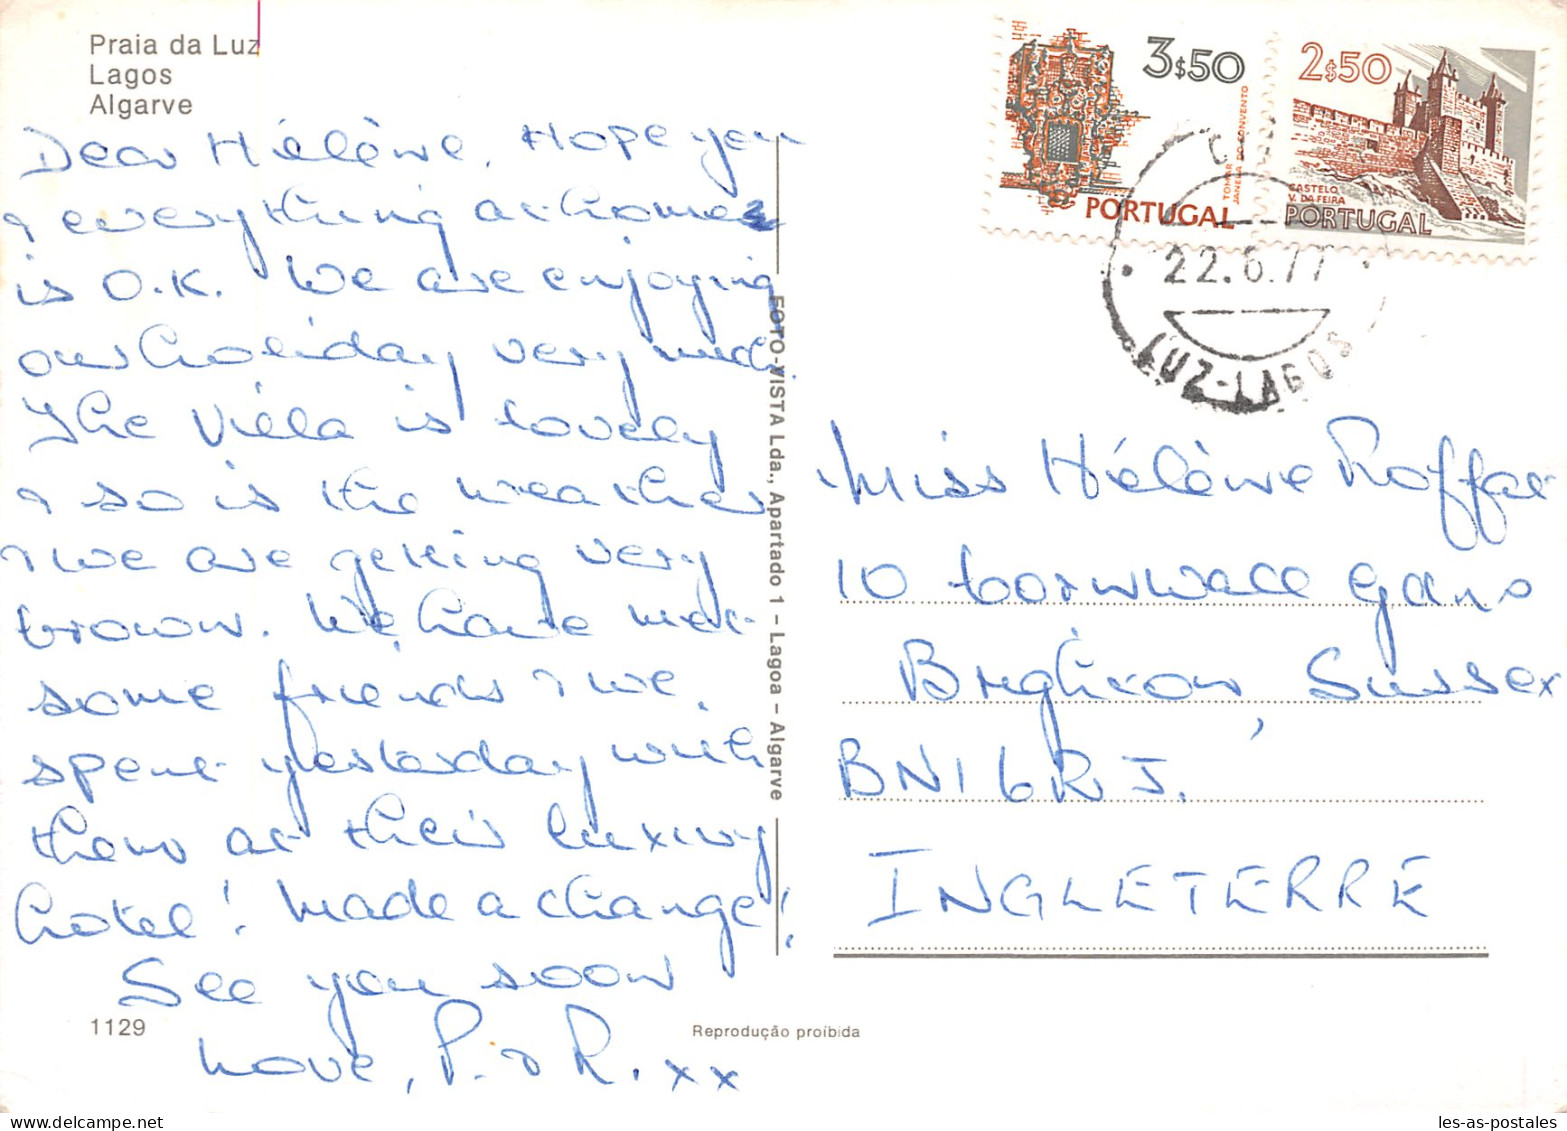 Praia da Luz
Lagos
Algarve
Dear Hélène, Hope you
& everything at home
is O.K. We are enjoying
our holiday very much.
The Villa is lovely
& so is the weather
& we are getting very
brown. We have met
some friends & we
spent yesterday with
them at their luxury
hotel! Made a change!
See you soon
Love, P. & R. xx
1129
FOTO-VISTA Lda., Apartado 1 – Lagoa – Algarve
Reprodução proíbida
3$50
TOMAR
JANELA DO CONVENTO
PORTUGAL
2$50
CASTELO
V. DA FEIRA
PORTUGAL
22.6.77
LUZ-LAGOS
Miss Hélène
10 Cornwall Gdns
Brighton, Sussex
BN1 6RJ.
INGLETERRE
les-as-postales